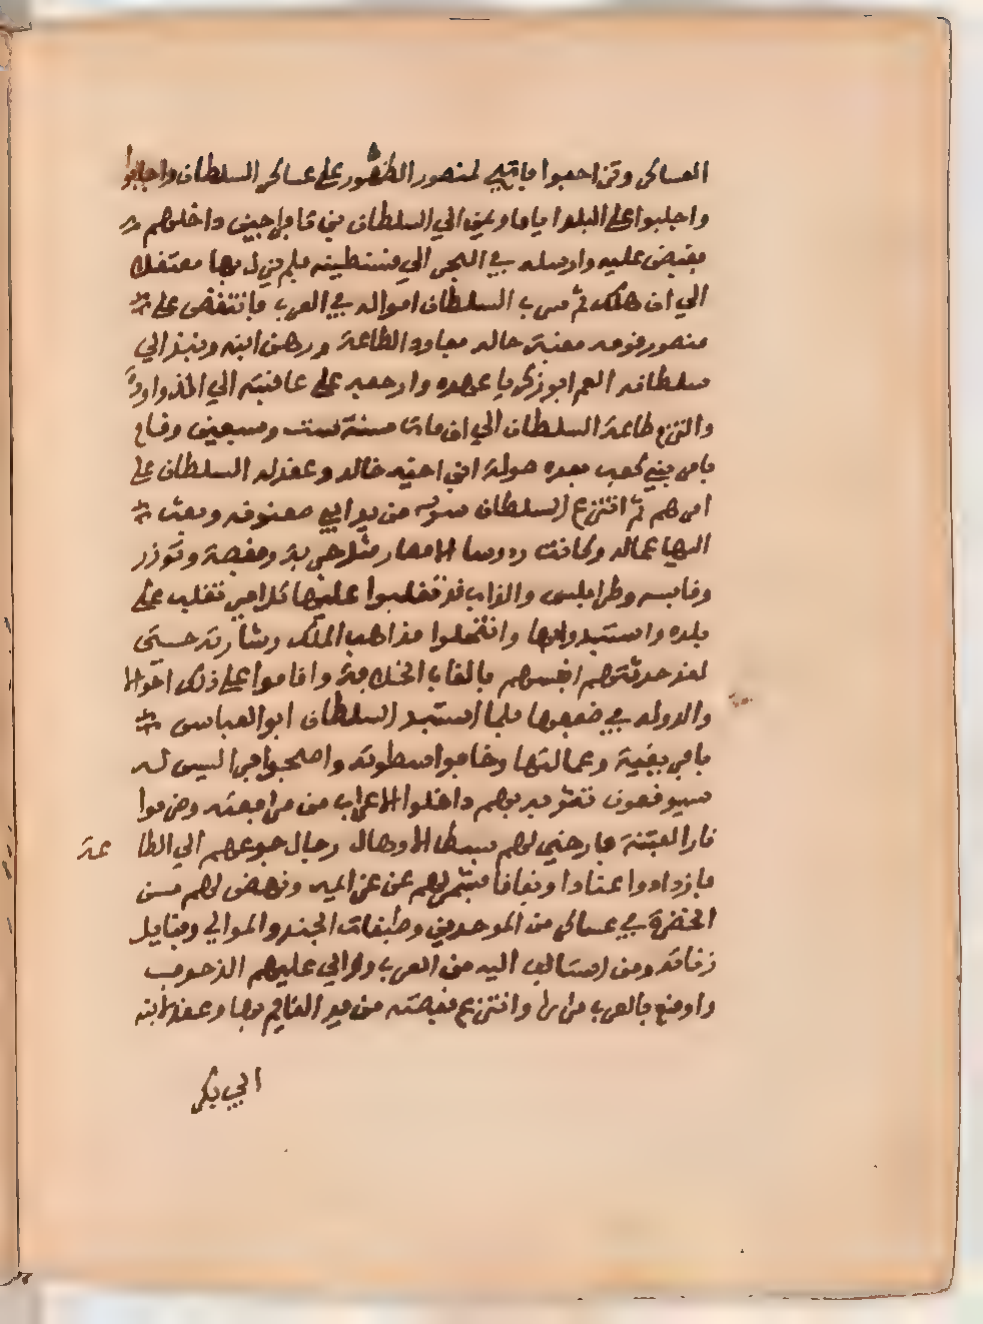 العساكر وتزاحفوا فاتيح لمنصور الظهور على عساكر السلطان واجلبوا
واجلبوا على البلد اياما ونمي الى السلطان ان تافراجين داخلهم
فقبض عليه وارسله في البحر الى قسنطينة فلم يزل بها معتقلا
الى ان هلك ثم سرب السلطان امواله في العرب فانتقض على
منصور قومه مغبة حاله فعاود الطاعة ورهن ابنه ونبذ الى
سلطانه العم ابو زكريا عهده وارجعه على عاقبته الى الذواودة
والتزم طاعة السلطان الى ان مات سنة ست وسبعين وقام
بامر بني كعب بعده صولة ابن اخيه خالد وعقد له السلطان على
امرهم ثم انتزع السلطان سوسة من يد ابي صعنونه وبعث
اليها عماله وكانت رءوسا الامصار مثل جربة وقفصة وتوزر
وقابس وطرابلس والزاب قد تغلبوا عليها كل امير تغلب على
بلده واستبدوا بها وانتحلوا مذاهب الملك وشارته حتى
لقد حدثتهم انفسهم بالقاب الخلافة واقاموا على ذلك احوالا
والدولة في ضعفها فلما استبد السلطان ابو العباس
بافريقية وعمالتها وخافوا سطوته واصبحوا في السر له
سيوقعون تغريبهم داخلوا الاعراب من مراجعته وضرموا
نار الفتنة فارخى لهم سبط الامهال رجال رجوعهم الى الطا عة
فازدادوا عنادا ونفاقا فشمر لهم عن عزائمه ونهض لهم من
الحضرة في عساكر من الموحدين وطبقات الجند والموالي وقبايل
زناتة ومن استالف اليه من العرب ووالى عليهم الزحوف
واوقع بالعرب مرارا وانتزع قفصة من يد القايم بها وعقد لابنه
ابي بكر